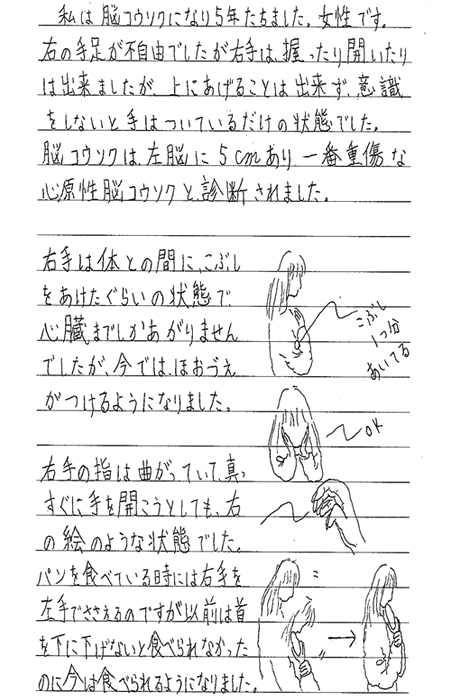 私は脳コウソクになり5年たちました。女性です。
右の手足が不自由でしたが右手は、握ったり開いたり
は出来ましたが、上にあげることは出来ず、意識
をしないと手はついているだけの状態でした。
脳コウソクは、左脳に5cmあり一番重傷な
心原性脳コウソクと、診断されました。
右手は体との間に、こぶし
をあけたぐらいの状態で
心臓までしかあがりません
でしたが、今では、ほおづえ
がつけるようになりました。
こぶし
1つ分
あいてる
OK
右手の指は曲がっていて、真っ
すぐに手を開こうとしても、右
の絵のような状態でした。
パンを食べている時には右手を
左手でささえるのですが以前は首
を下に下げないと食べられなかった
のに今は食べられるようになりました。